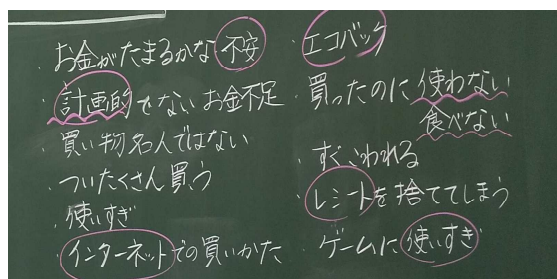 ・お金がたまるかな不安
・計画的でない お金不足
・買い物名人ではない
・ついたくさん買う
・使いすぎ
・インターネットでの買いかた
・エコバック
・買ったのに使わない
食べない
・すぐこわれる
・レシートを捨ててしまう
・ゲームに使いすぎ